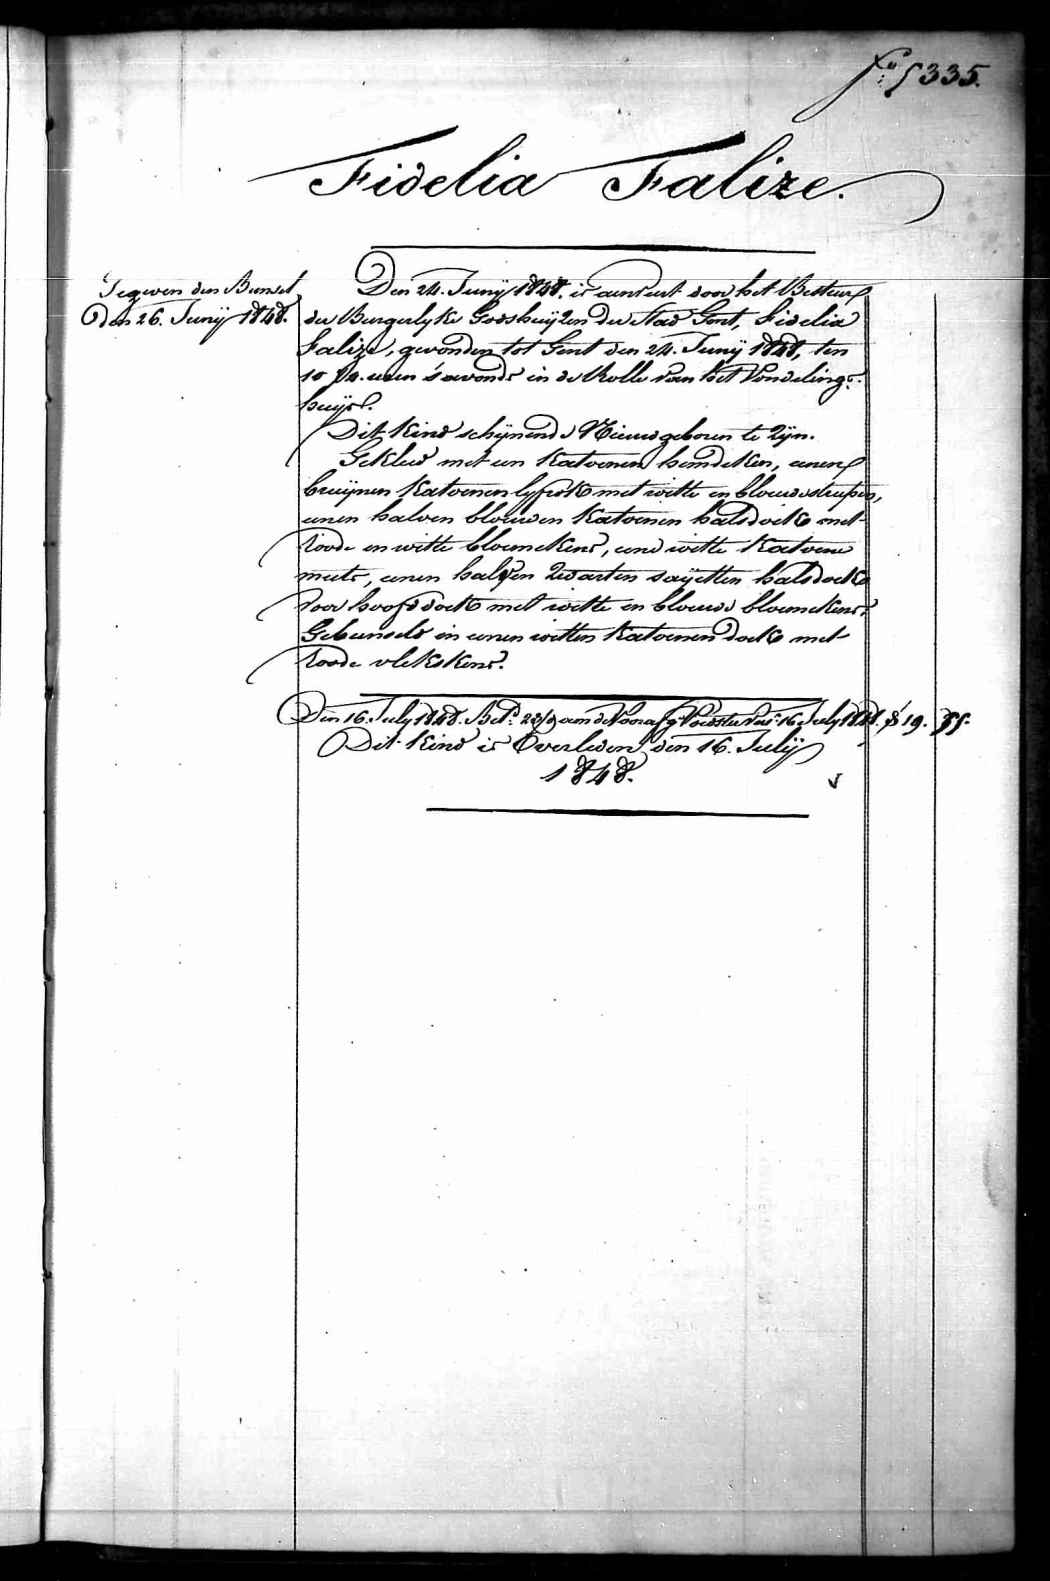 fº 335.
Fidelia Falize.
Gegeven den Bunsel
Den 26. Junÿ 1848.
Den 24. Junÿ 1848. is aenveert door het Bestuer
der Burgerlyke Godshuÿzen der Stad Gent, Fidelia
Falize, gevonden tot Gent den 24. Junÿ 1848, ten
10 1/4. uren 's avonds in de Rolle van het Vondeling-
huÿs.
Dit Kind schÿnende Nieuwgeboren te zÿn.
Gekleed met een Katoenen hemdeken, eenen
bruÿnen Katoenen lyfrok met witte en blauwe streepen,
eenen halven blauwen Katoenen halsdoek met
roode en witte bloemekens, eene witte Katoene
muts, eenen halven zwarten saÿetten halsdoek
voor hoofddoek met witte en blauwe bloemekens.
Gebunseld in eenen witten Katoenen doek met
roode vlekskens.
Den 16. July 1848. Bet. aen de Voedster 16. July 1848. 19.
Dit Kind is Overleden den 16. Julÿ
1848.